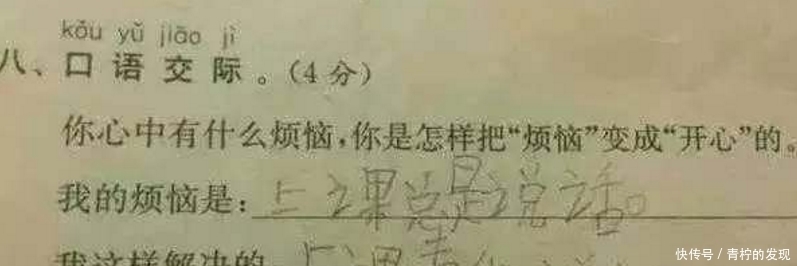 kǒu yǔ jiāo jì
八、口语交际。(4分)
你心中有什么烦恼,你是怎样把“烦恼”变成“开心”的。
我的烦恼是:上课总是说话。
我这样解决的
快传号/青柠的发现